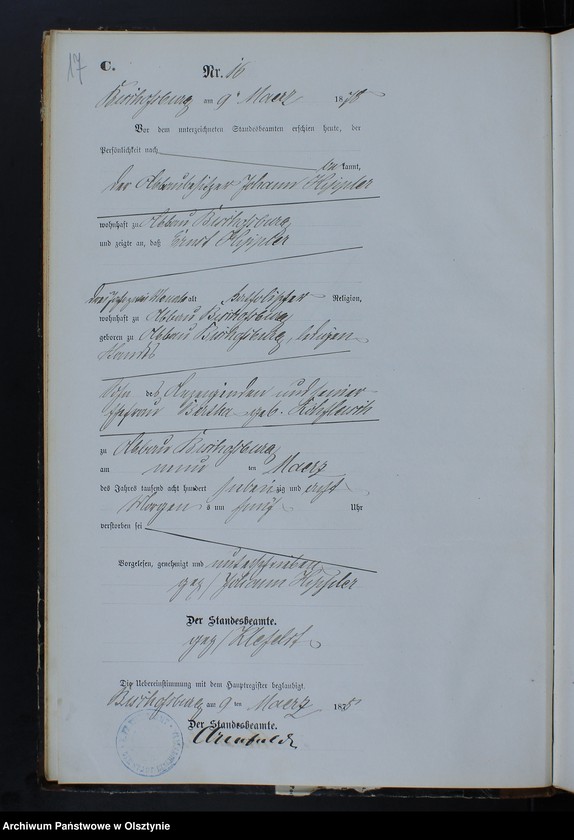 17
C.
Nr. 16
Bischofsburg am 9 ten Maerz 1878
Vor dem unterzeichneten Standesbeamten erschien heute, der
Persönlichkeit nach
bekannt,
der Abbaubesitzer Johann Hippler
wohnhaft zu Abbau Bischofsburg
und zeigte an, daß Ernst Hippler
drei Jahre alt katholischer Religion,
wohnhaft zu Abbau Bischofsburg
geboren zu Abbau Bischofsburg, ledigen
Standes
Sohn des Anzeigenden und seiner
Ehefrau Bertha geb.
zu Abbau Bischofsburg
am neun ten Maerz
des Jahres tausend acht hundert siebenzig und acht
Morgens um fünf Uhr
verstorben sei
Vorgelesen, genehmigt und unterschrieben
gez/ Johann Hippler
Der Standesbeamte.
gez/
Die Uebereinstimmung mit dem Hauptregister beglaubigt.
Bischofsburg am 9 ten Maerz 1878
Der Standesbeamte.
Archiwum Państwowe w Olsztynie